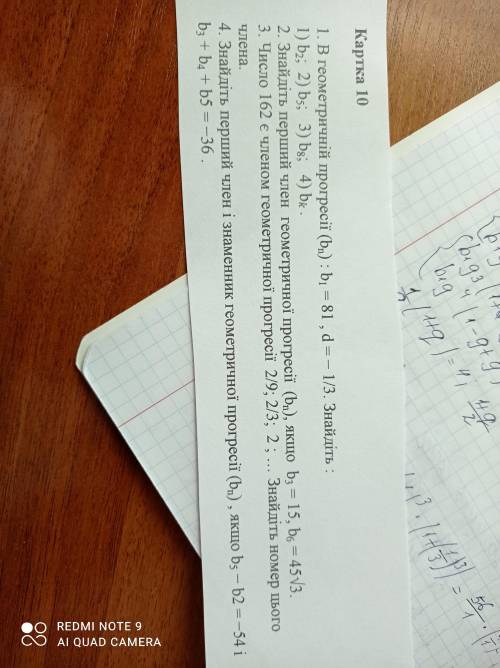 Картка 10
1. В геометричній прогресії (bₙ) : b₁ = 81 , d = – 1/3. Знайдіть :
1) b₂; 2) b₅; 3) b₈; 4) bₖ .
2. Знайдіть перший член геометричної прогресії (bₙ), якщо b₃ = 15, b₆ = 45√3.
3. Число 162 є членом геометричної прогресії 2/9; 2/3; 2 ; … Знайдіть номер цього
члена.
4. Знайдіть перший член і знаменник геометричної прогресії (bₙ) , якщо b₅ – b2 = –54 і
b₃ + b₄ + b5 = –36 .
REDMI NOTE 9
AI QUAD CAMERA